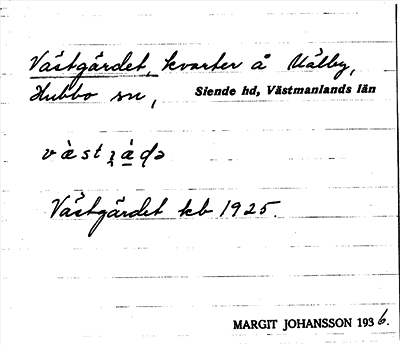 Västgärdet, kvarter å Målby,
Hubbo sn, Siende hd, Västmanlands län
Västgärdet kb 1925.
MARGIT JOHANSSON 1936.